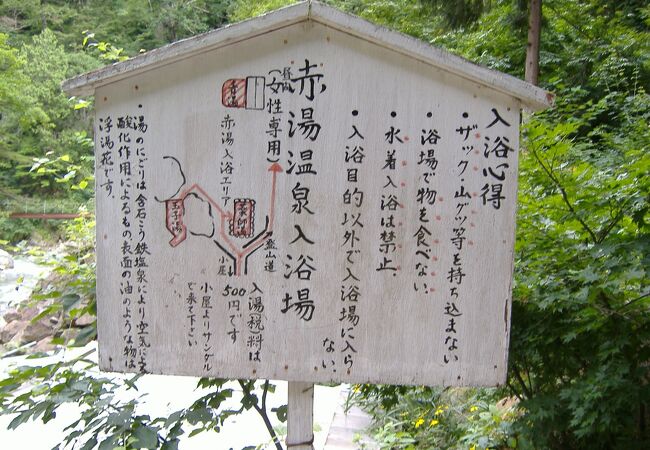 入浴心得
・ザック・山グツ等を持ち込まない
・浴場で物を食べない。
・水着入浴は禁止
・入浴目的以外で入浴場に入らない。
赤湯温泉入浴場
青湯
(女性専用)
赤湯入浴エリア
玉子湯
薬師湯
登山道
小屋
入湯(税)料は
500円です
小屋よりサンダル
で来て下さい
・湯のにごりは含石こう鉄塩泉により空気による
酸化作用によるもの表面の油のような物は
浮湯花です。